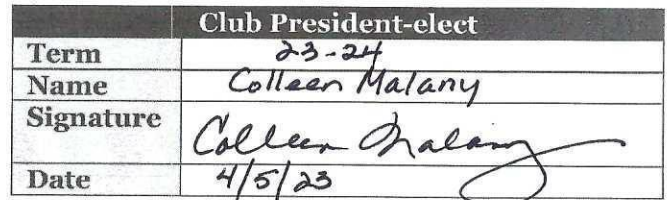 Club President-elect
Term 23-24
Name Colleen Malany
Signature Colleen Malany
Date 4/5/23